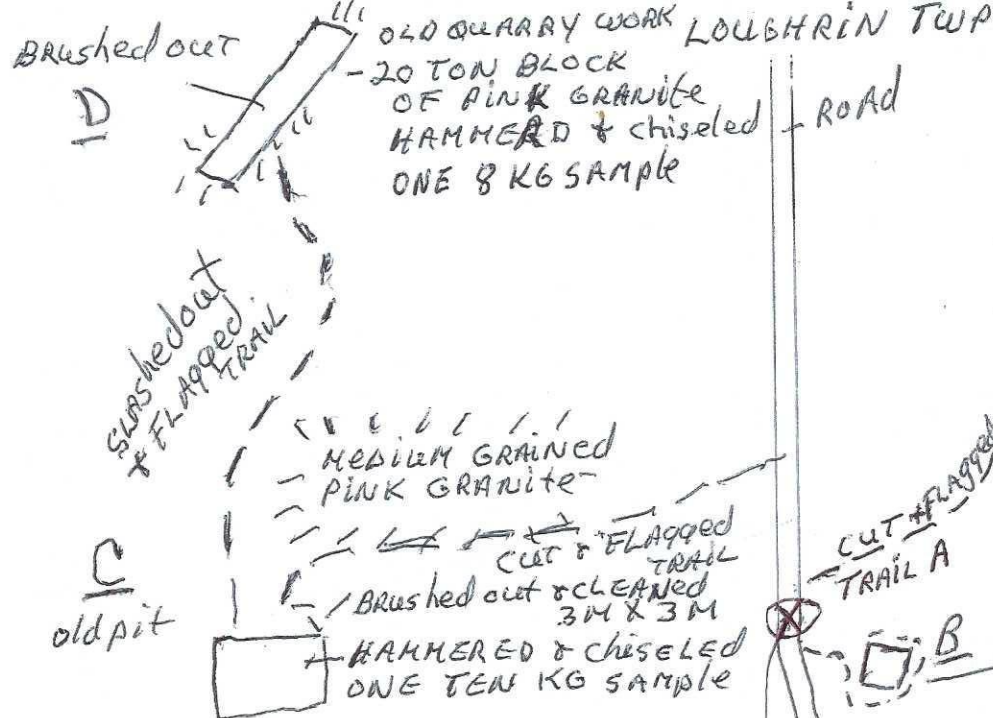 Brushed out
D
OLD QUARRY WORK
- 20 TON BLOCK
OF PINK GRANITE
HAMMERD & chiseled
ONE 8 KG SAMPle
LOUGHRIN TWP
ROAd
Slashedout
& FLAgged
TRAIL
MEDIUM GRAINed
PINK GRANite
CUT & FLAgged
TRAIL
C
old pit
BRushed out & CLEANed
3M X 3M
HAMMERED & ChiseLED
ONE TEN KG SAMPle
CUT & FLAgged
TRAIL A
X
B